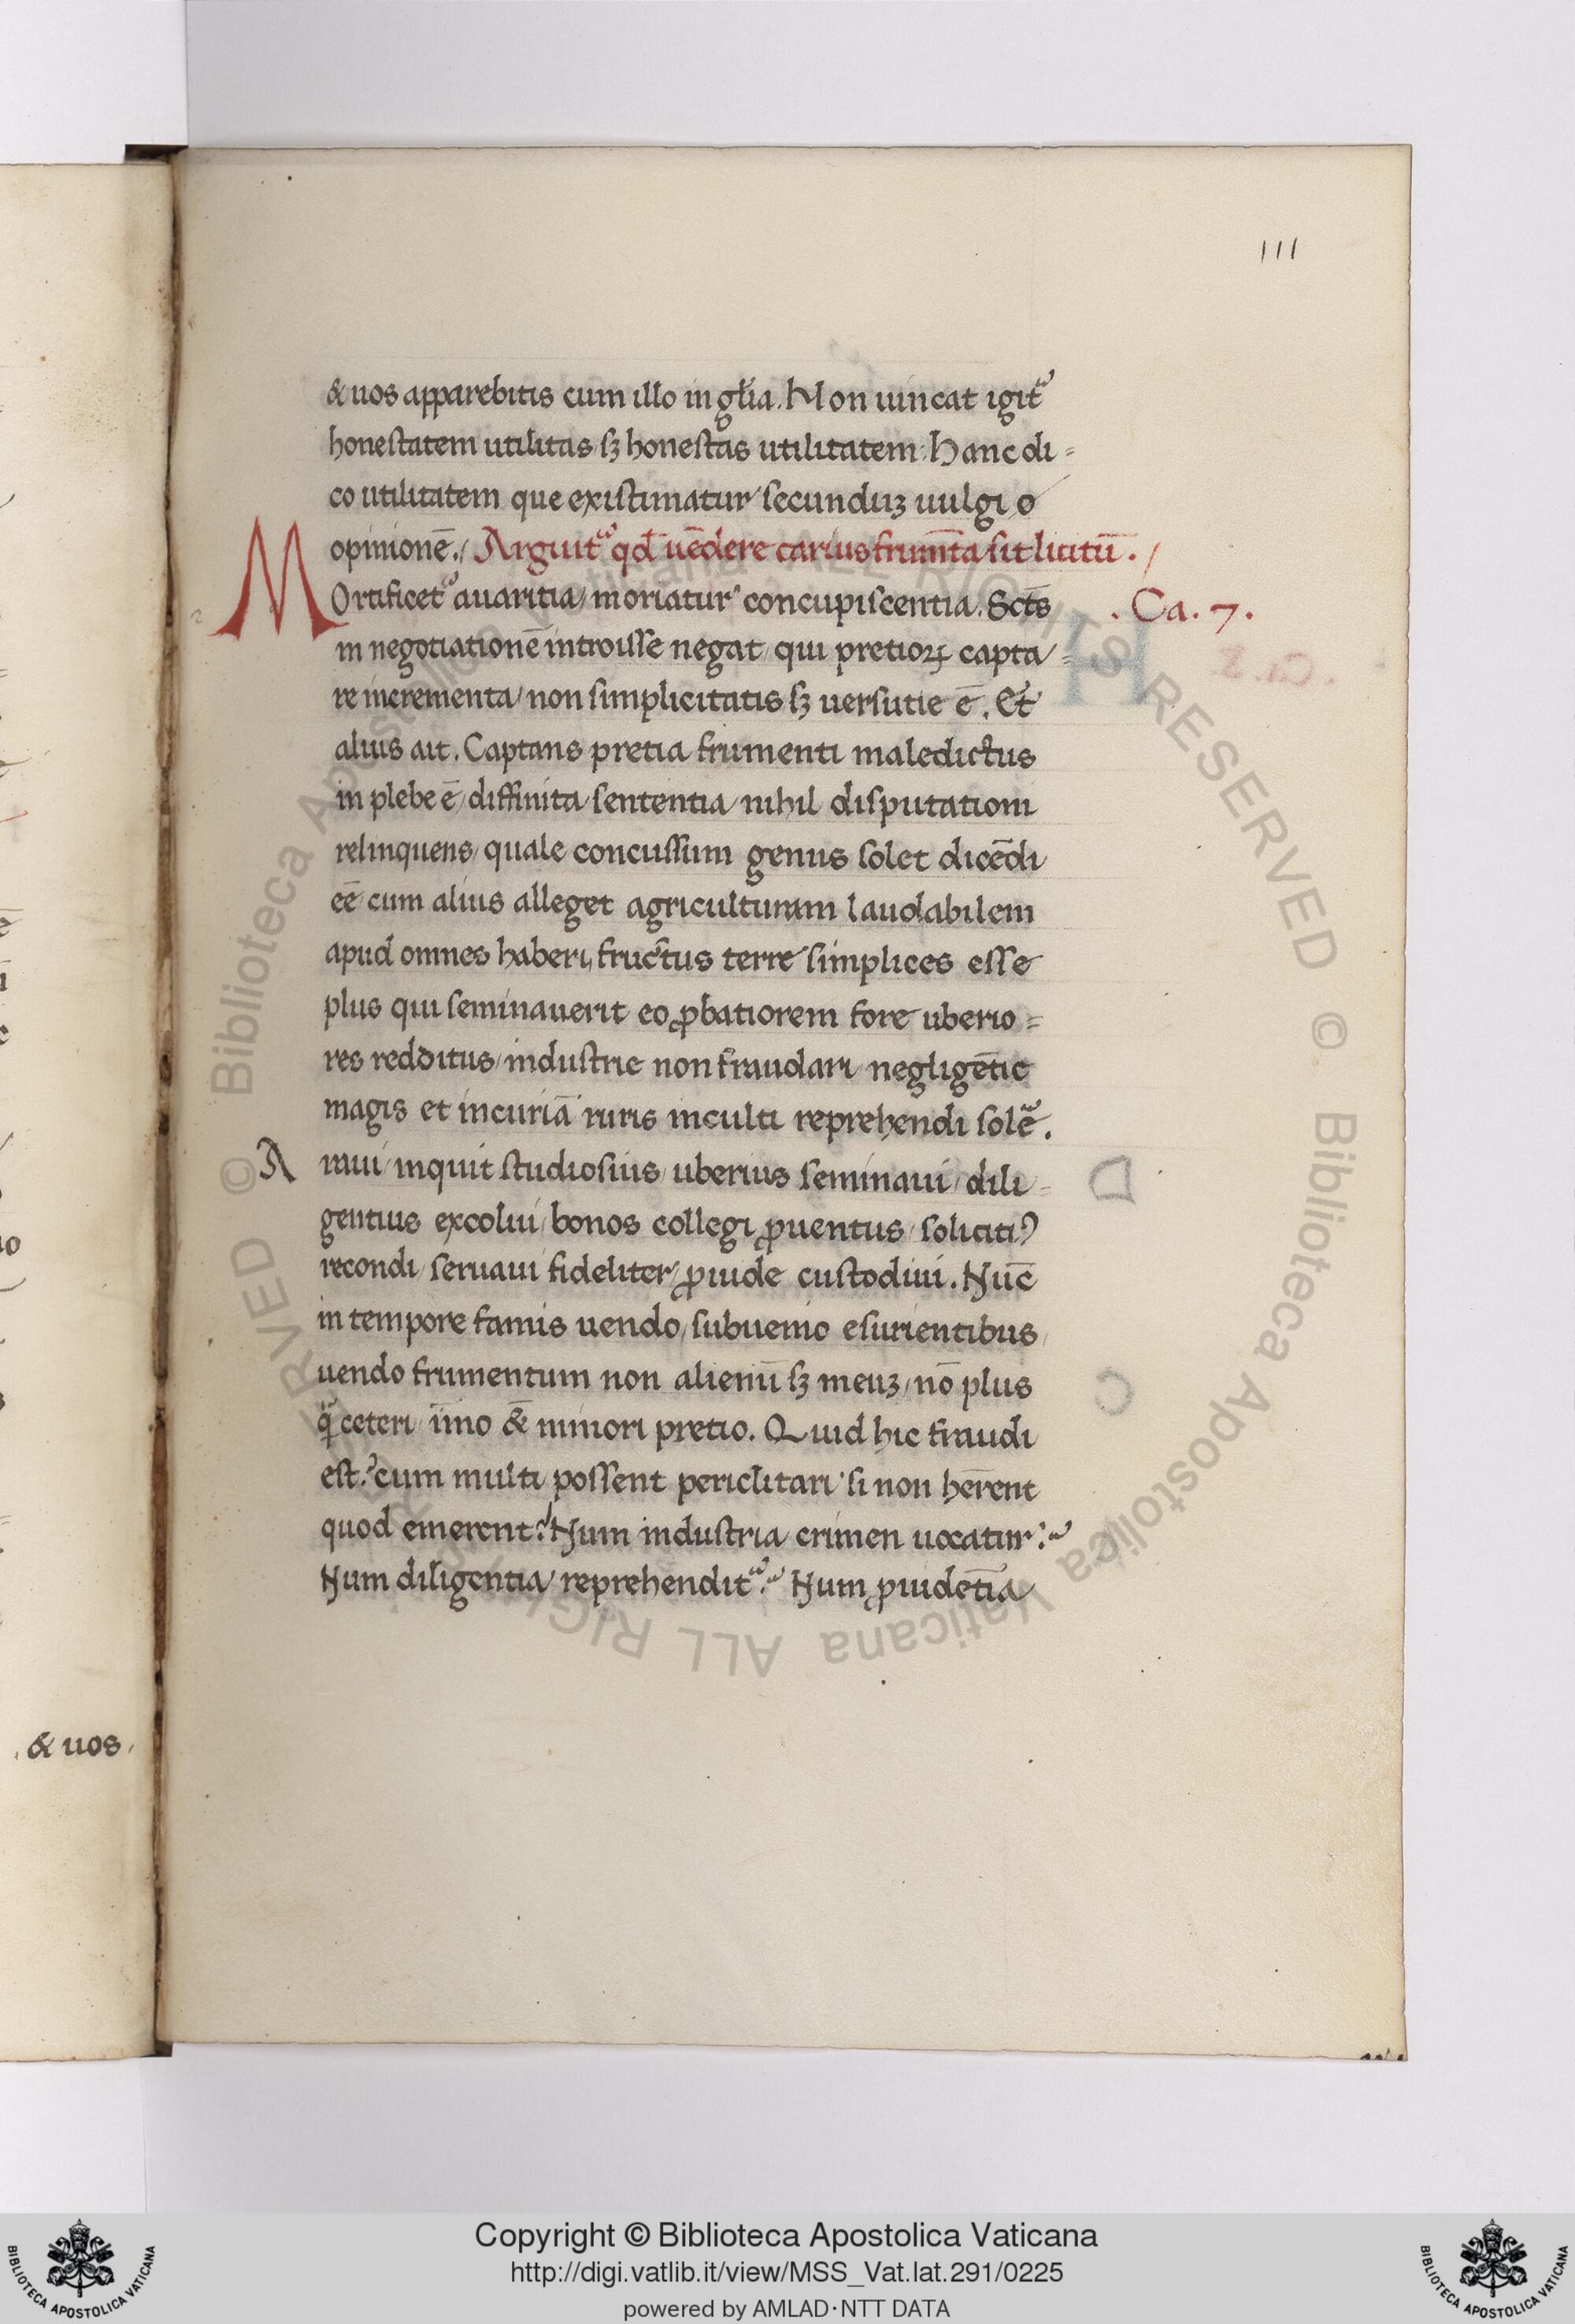 111
& uos apparebitis cum illo in gl̅ia. Non uincat igit᷑
honestatem utilitas sꝫ honestas utilitatem. Hanc di=
co utilitatem que existimatur secunduꝫ uulgi o
opinionē. Arguit᷑ qđ uēdere carius frum̅ta sit licitū.
Mortificet᷑ auaritia / moriatur concupiscentia. Sct̅s
. Ca. 7.
in negotiationē introisse negat / qui pretioꝝ capta=
re incrementa / non simplicitatis sꝫ uersutie ē. Et
alius ait. Captans pretia frumenti maledictus
in plebe ē / diffinita sententia nihil disputationi
relinquens / quale concussum genus solet dicēdi
eē cum alius alleget agriculturam laudabilem
apud omnes haberi, fructus terre simplices esse
plus qui seminauerit eo ꝓbatiorem fore uberio=
res redditus / industrie non fraudari negligētie
magis et incuriā ruris inculti reprehendi solē᷑.
Araui / inquit studiosius / uberius seminaui / dili=
gentius excolui / bonos collegi ꝓuentus / soliciti⁹
recondi / seruaui fideliter / ꝓuide custodiui. Nūc
in tempore famis uendo / subuenio esurientibus /
uendo frumentum non alienū sꝫ meuꝫ / nō plus
qᷓ ceteri / īmo & minori pretio. Quid hic fraudi
est? cum multi possent periclitari si non hēr̅ent
quod emerent? Num industria crimen uocatur?
Num diligentia reprehendit᷑? Num ꝓuidētia
& uos
Copyright © Biblioteca Apostolica Vaticana
http://digi.vatlib.it/view/MSS_Vat.lat.291/0225
powered by AMLAD·NTT DATA
BIBLIOTECA APOSTOLICA VATICANA
BIBLIOTECA APOSTOLICA VATICANA
© Biblioteca Apostolica Vaticana ALL RIGHTS RESERVED © Biblioteca Apostolica Vaticana ALL RIGHTS RESERVED